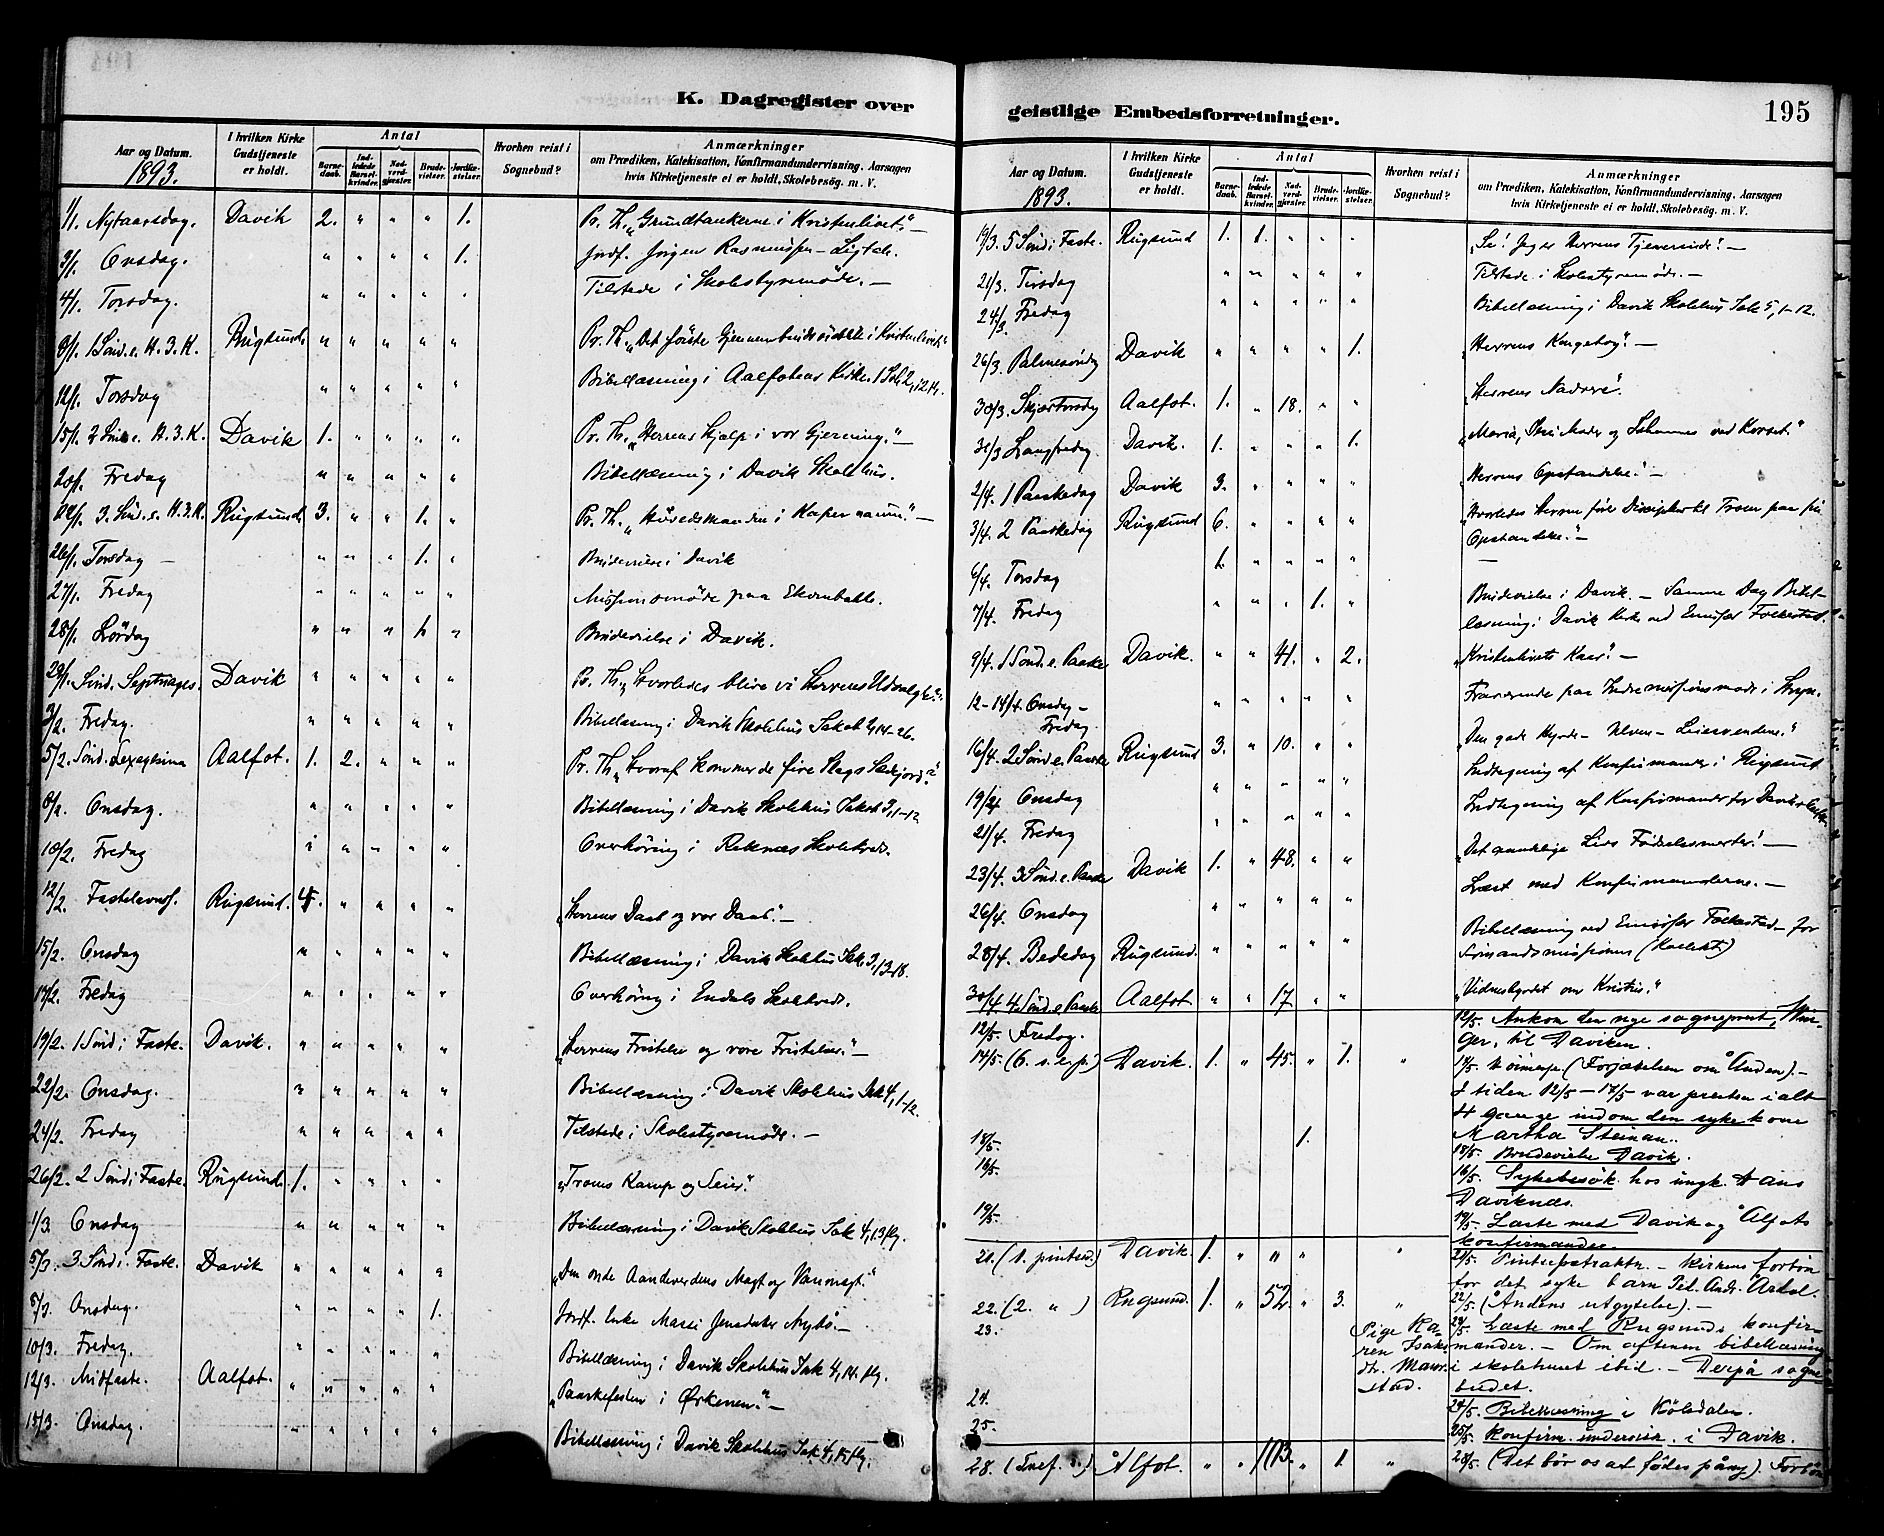 K. Dagregister over
Aar og Datum.
I hvilken Kirke Gudstjeneste er holdt.
Antal
Barnedaab.
Indledede Barselkvinder.
Nadverdgjæster.
Brudevielser.
Jordfæstelser.
Hvorhen reist i Sognebud?
Anmærkninger
om Prædiken, Katekisation, Konfirmandundervisning, Aarsagen
hvis Kirketjeneste ei er holdt, Skolebesøg. m. V.
1893.
1/1. Nytaarsdag. Davik 2. " " " 1. Pr. Th. „Grundtankerne i Kristenlivet" –
3/1. Onsdag. " " " " 1. Jordf. Jørgen Rasmussen
4/1. Torsdag. " " " " " Tilstede i Skolestyremøde. –
8/1. 1 Sönd. e. H. 3. K. Rugsund. " " " " " Pr. Th. „Det første i Kristenlivet"
12/1. Torsdag " " " " " Bibellæsning i Aalfotens Kirke.
15/1. 2 Sönd. e. H. 3. K. Davik 1. " " " " Pr. Th. „Herrens Hjælp i vor Gjerning." –
20/1. Fredag " " " " " Bibellæsning i Davik Skolehus.
22/1. 3. Sönd. e. H. 3. K. Rugsund. 3. " " 1. " Pr. Th. „Høvedsmanden i Kapernaum." –
26/1. Torsdag – " " " 1. " Brudevielse i Davik
27/1. Fredag " " " " " Missionsmøde paa
28/1. Lørdag " " " 1. " Brudevielse i Davik.
29/1. Sönd. Septuages. Davik " " " " " Pr. Th. „Hvorledes blive vi Herrens Udvalgte?"
3/2. Fredag. " " " " " Bibellæsning i Davik Skolehus Jakob 2, 14–26.
5/2. Sönd. Sexagesima Aalfot. 1. 2. " " " Pr. Th. „Hvoraf kommer de fire Slags Sædjord?"
8/2. Onsdag. " " " " " Bibellæsning i Davik Skolehus Jakob 3, 1–12
10/2. Fredag " " " " " Overhøring i Skolekreds.
12/2. Fastelavnss. Rugsund. 4. " " " " „Herrens Daab og vor Daab." –
15/2. Onsdag " " " " " Bibellæsning i Davik Skolehus Jak. 3, 13–18.
17/2. Fredag " " " " " Overhøring i Endals Skolekreds.
19/2. 1 Sönd i Faste. Davik. " " " " " „Herrens Fristelse og vore Fristelser." –
22/2. Onsdag. " " " " " Bibellæsning i Davik Skolehus Jak 4, 1–12.
24/2. Fredag " " " " " Tilstede i Skolestyremøde. –
26/2. 2 Sönd i Faste. Rugsund. 1. " " " " „Troens Kamp og Seier."
1/3. Onsdag " " " " " Bibellæsning i Davik Skolehus Jak 4, 13 flg.
5/3. 3 Sönd i Faste. Davik " " " " " „Den onde Aandeverdens Magt og Vanmagt."
8/3. Onsdag. " " " " 1. Jordf. Enke Jensdatter –
10/3. Fredag. " " " " " Bibellæsning i Davik Skolehus Jak 4, 14. flg.
12/3. Midfaste. Aalfot. " " " " " „Paaskefesten i Ørkenen." –
15/3. Onsdag. " " " " " Bibellæsning i Davik Skolehus Jak 4, 15 flg.
geistlige Embedsforretninger.
195
Aar og Datum.
I hvilken Kirke Gudstjeneste er holdt.
Antal
Barnedaab.
Indledede Barselkvinder.
Nadverdgjæster.
Brudevielser.
Jordfæstelser.
Hvorhen reist i Sognebud?
Anmærkninger
om Prædiken, Katekisation, Konfirmandundervisning, Aarsagen
hvis Kirketjeneste ei er holdt, Skolebesøg. m. V.
1893.
19/3. 5 Sönd i Faste. Rugsund 1. 1. " " " „Se! Jeg er Herrens Tjenerinde!" –
21/3. Tirsdag " " " " " Tilstede i Skolestyremøde. –
24/3. Fredag " " " " " Bibellæsning i Davik Skolehus Jak 5, 1–12.
26/3. Palmesöndag Davik " " " " 1. „Herrens Kongetog." –
30/3. Skjærtorsdag Aalfot. 1. " 18. " " „Herrens Nadvere".
31/3 Langfredag. Davik. 1. " " " 1. „Maria, Jesu Moder og Johannes ved Korset."
2/4. 1 Paaskedag Davik 3. " " " " „Herrens Opstandelse." –
3/4. 2 Paaskedag Rugsund 6. " " " " „Hvorledes Herren fører Disciplene til Troen paa sin
Opstandelse." –
6/4. Torsdag 1. " " " " –
7/4. Fredag " " " 1. " Brudevielse i Davik. – Samme Dag Bibel-
læsning i Davik Kirke ved Emissær Folkestad.
9/4. 1 Sönd. e. Paaske Davik. " " 41. " 2. „Kristenlivets Kaar." –
12–14/4. Onsdag – Fredag " " " " " Fraværende paa Indremissionsmøde i Stryn.
16/4. 2 Sönd e. Paaske Rugsund 3. " 10. " " „Den gode Hyrde – Ulven – Leiesvenden."
19/4 Onsdag " " " " " Indtagning af Konfirmander i Rugsund
21/4. Fredag " " " " " Indtagning af Konfirmander for Davik
23/4. 3 Sönd. e. Paaske Davik 1. " 48. " " „Det aandelige Livs Fødselssmerter." –
26/4. Onsdag " " " " " Læst med Konfirmanderne. –
28/4. Bededag Rugsund. " " " " " Bibellæsning ved Emissær Folkestad – for
Sömandsmissionen (Kollekt)
30/4. 4 Sönd. e. Paaske Aalfot " " 17 " " „Vidnesbyrdet om Kristus."
12/5. Fredag. 12/5. Ankom den nye sogneprest,
ger, til Daviken.
14/5. (6. s. e. p.) Davik. 1. " 45. " 1. " 14/5. Höimesse (Forjættelsen om Ånden). –
I tiden 12/5 – 14/5 var presten i alt
4 gange indom den syke kone
Martha Steinan.
15/5. 1. 15/5. Brudevielse Davik.
16/5. 16/5. Sykebesök hos ungk. Hans
Daviknes.
19/5. 19/5. Læste med Davik og Alfots
konfirmander.
21. (1. pintsed.) Davik. 1. " " " " 21/5. – Kirkens forbön
for det syke barn
22. (2. " ) Rugsund. 1. " 52. " 3. " 22/5. (Åndens utgytelse). –
23. Pige Karen Isaksdt. 23/5. Læste med Rugsunds konfir-
mander. – Om aftenen bibellæsning
i skolehuset ibid. – Derpå sogne-
budet.
24. 24/5. Bibellæsning i Kölsdalen.
25. 25/5. Konfirm. undervisn. i Davik.
28. (Tref. s.) Ålfot. " " 103. " 1 " 28/5. (Det bör os at födes påny). Forbön